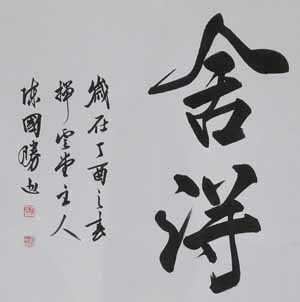 舍得
歲在丁酉之春
揮雲堂主人
陳國勝